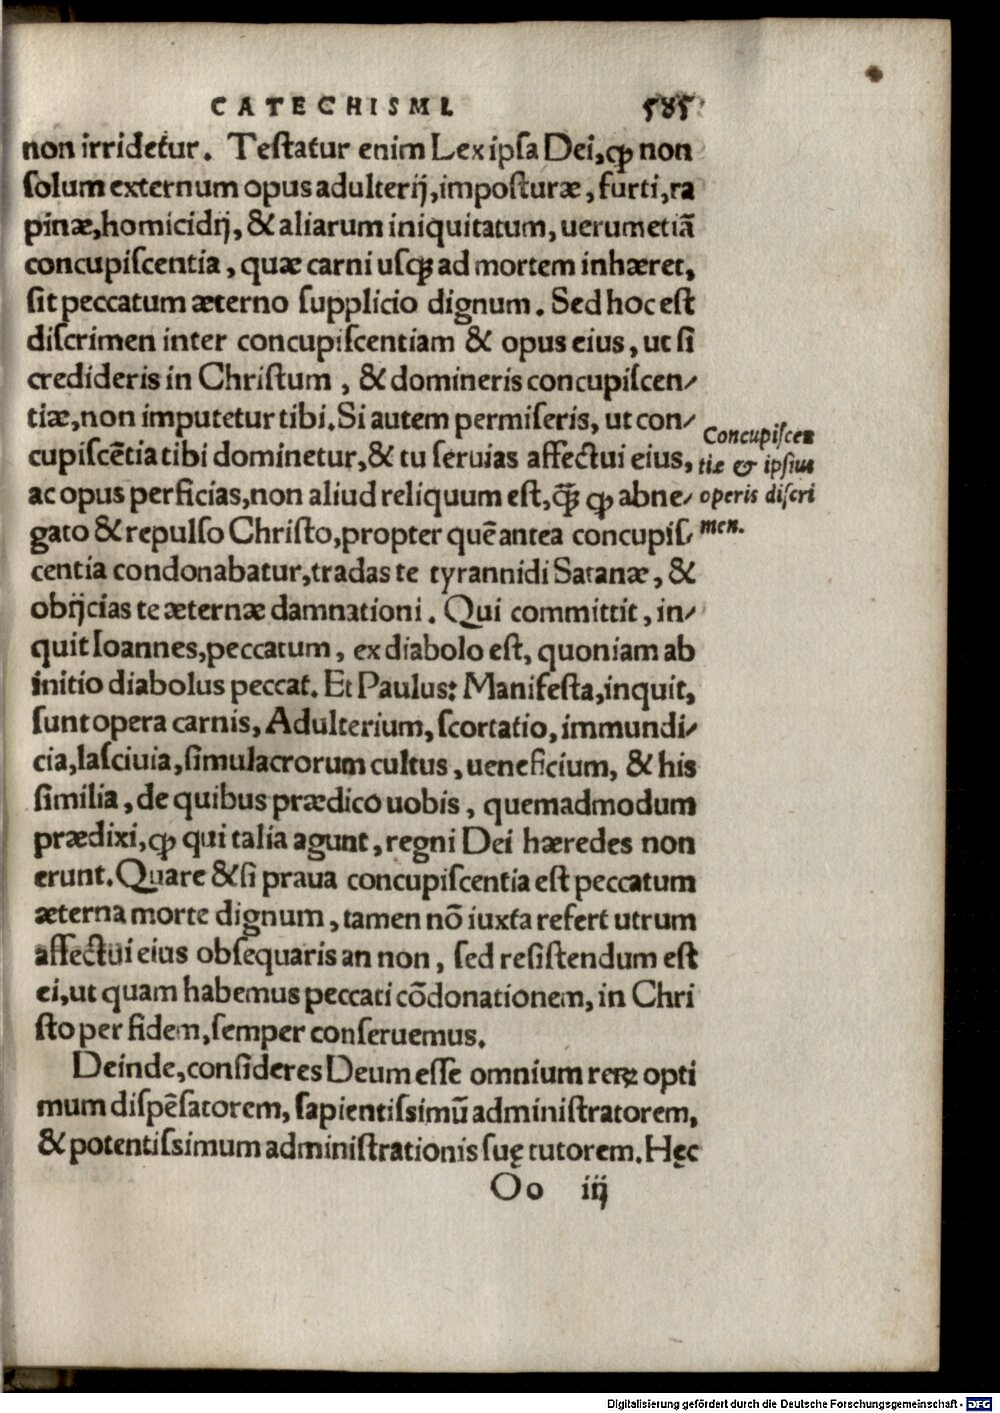 CATECHISMI. 585
non irridetur. Testatur enim Lex ipsa Dei, ꝙ non
solum externum opus adulterij, imposturæ, furti, ra
pinæ, homicidij, & aliarum iniquitatum, uerumetiã
concupiscentia, quæ carni usq́ꝫ ad mortem inhæret,
sit peccatum æterno supplicio dignum. Sed hoc est
discrimen inter concupiscentiam & opus eius, ut si
credideris in Christum, & domineris concupiscen/
tiæ, non imputetur tibi. Si autem permiseris, ut con/
cupiscẽtia tibi dominetur, & tu seruias affectui eius,
ac opus perficias, non aliud reliquum est, q̃ꝫ ꝙ abne/
gato & repulso Christo, propter quẽ antea concupis/
centia condonabatur, tradas te tyrannidi Satanæ, &
obijcias te æternæ damnationi. Qui committit, in/
quit Ioannes, peccatum, ex diabolo est, quoniam ab
initio diabolus peccat. Et Paulus: Manifesta, inquit,
sunt opera carnis, Adulterium, scortatio, immundi/
cia, lasciuia, simulacrorum cultus, ueneficium, & his
similia, de quibus prædico uobis, quemadmodum
prædixi, ꝙ qui talia agunt, regni Dei hæredes non
erunt. Quare & si praua concupiscentia est peccatum
æterna morte dignum, tamen nõ iuxta refert utrum
affectui eius obsequaris an non, sed resistendum est
ei, ut quam habemus peccati cõdonationem, in Chri
sto per fidem, semper conseruemus.
Deinde, consideres Deum esse omnium reꝝ opti
mum dispẽsatorem, sapientissimũ administratorem,
& potentissimum administrationis suę tutorem. Hęc
Oo iij
Concupiscen
tiæ & ipsius
operis discri
men.
Digitalisierung gefördert durch die Deutsche Forschungsgemeinschaft - DFG